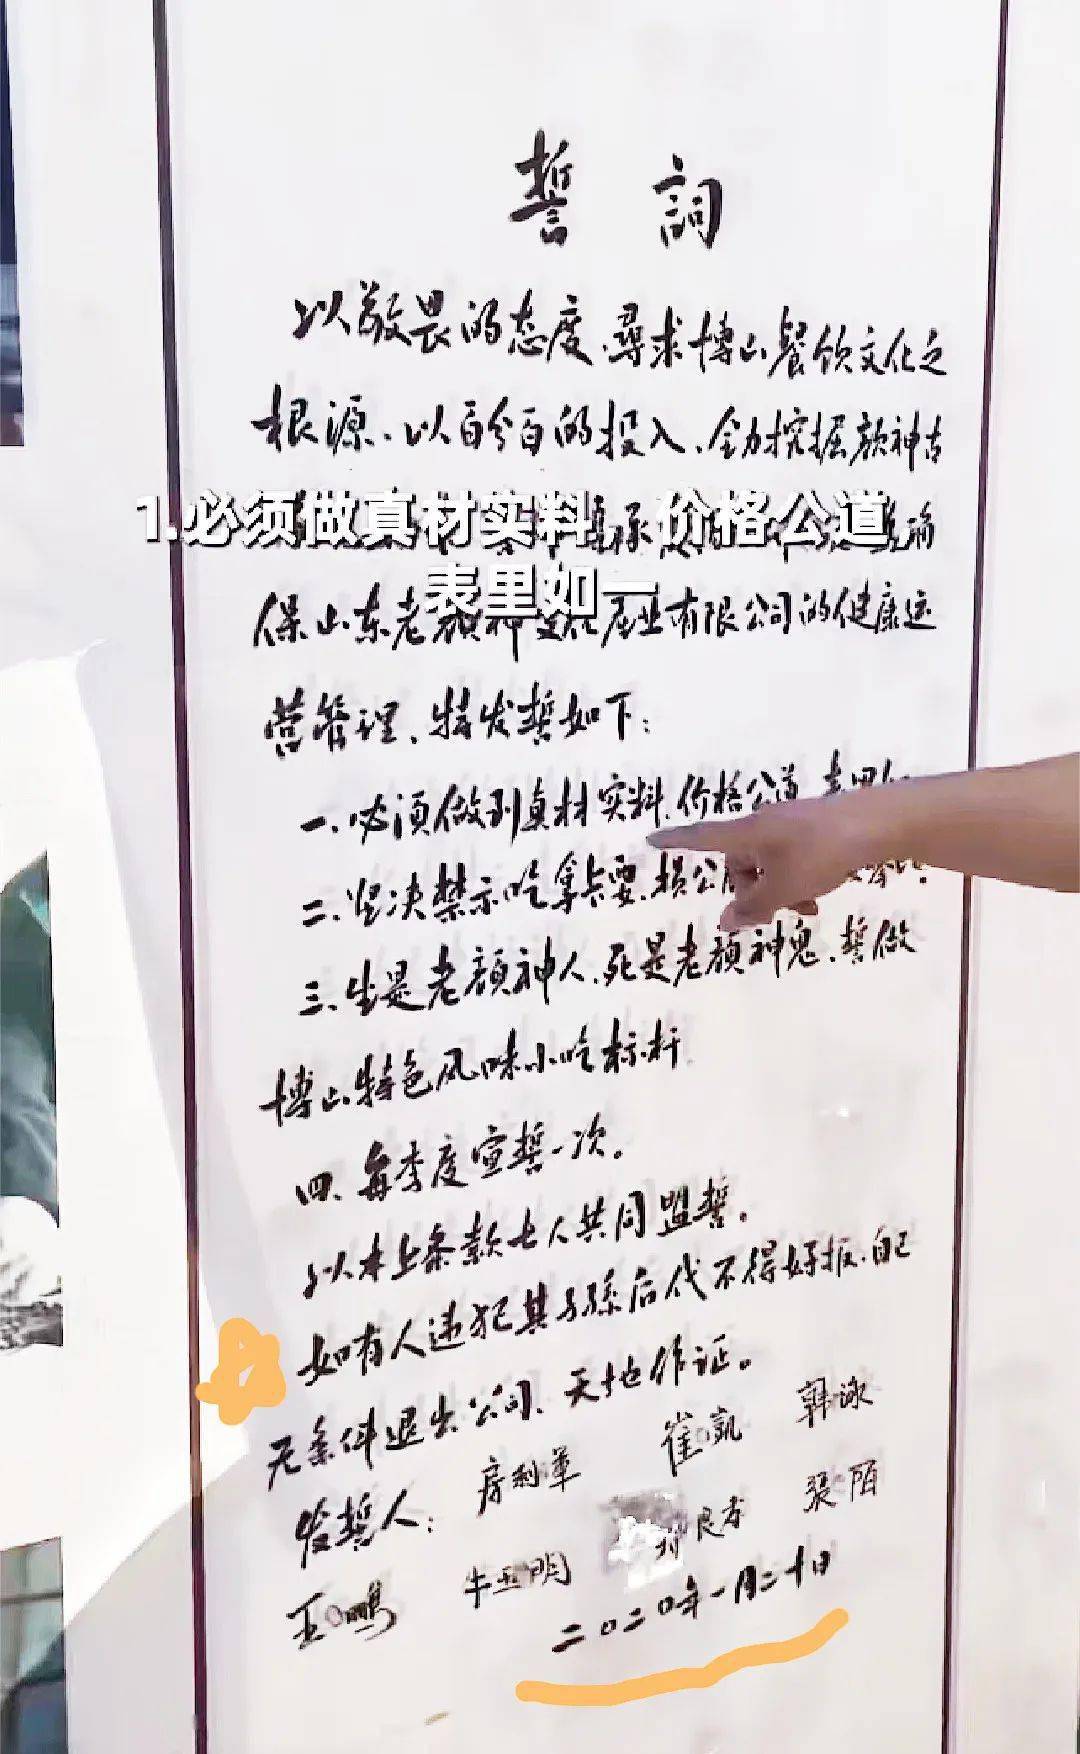 誓詞
以敬畏的态度、尋求博山餐饮文化之
根源、以百分百的投入、全力挖掘颜神古
1.必须做真材实料，价格公道，
表里如一
保山东老颜神文化产业有限公司的健康运
营管理、特发誓如下：
一、必须做到真材实料、价格公道、表里
二、坚决禁示吃拿卡要、损公
三、生是老顔神人、死是老顔神鬼、誓做
博山特色风味小吃标杆.
四、每季度宣誓一次。
以本上条款七人共同盟誓。
如有人违犯其子孫后代不得好报、自己
无条件退出公司、天地作证。
发誓人：房利軍 崔凱 韩泳
王鵬 牛玉明 良孝 張陌
二〇二〇年一月二十日